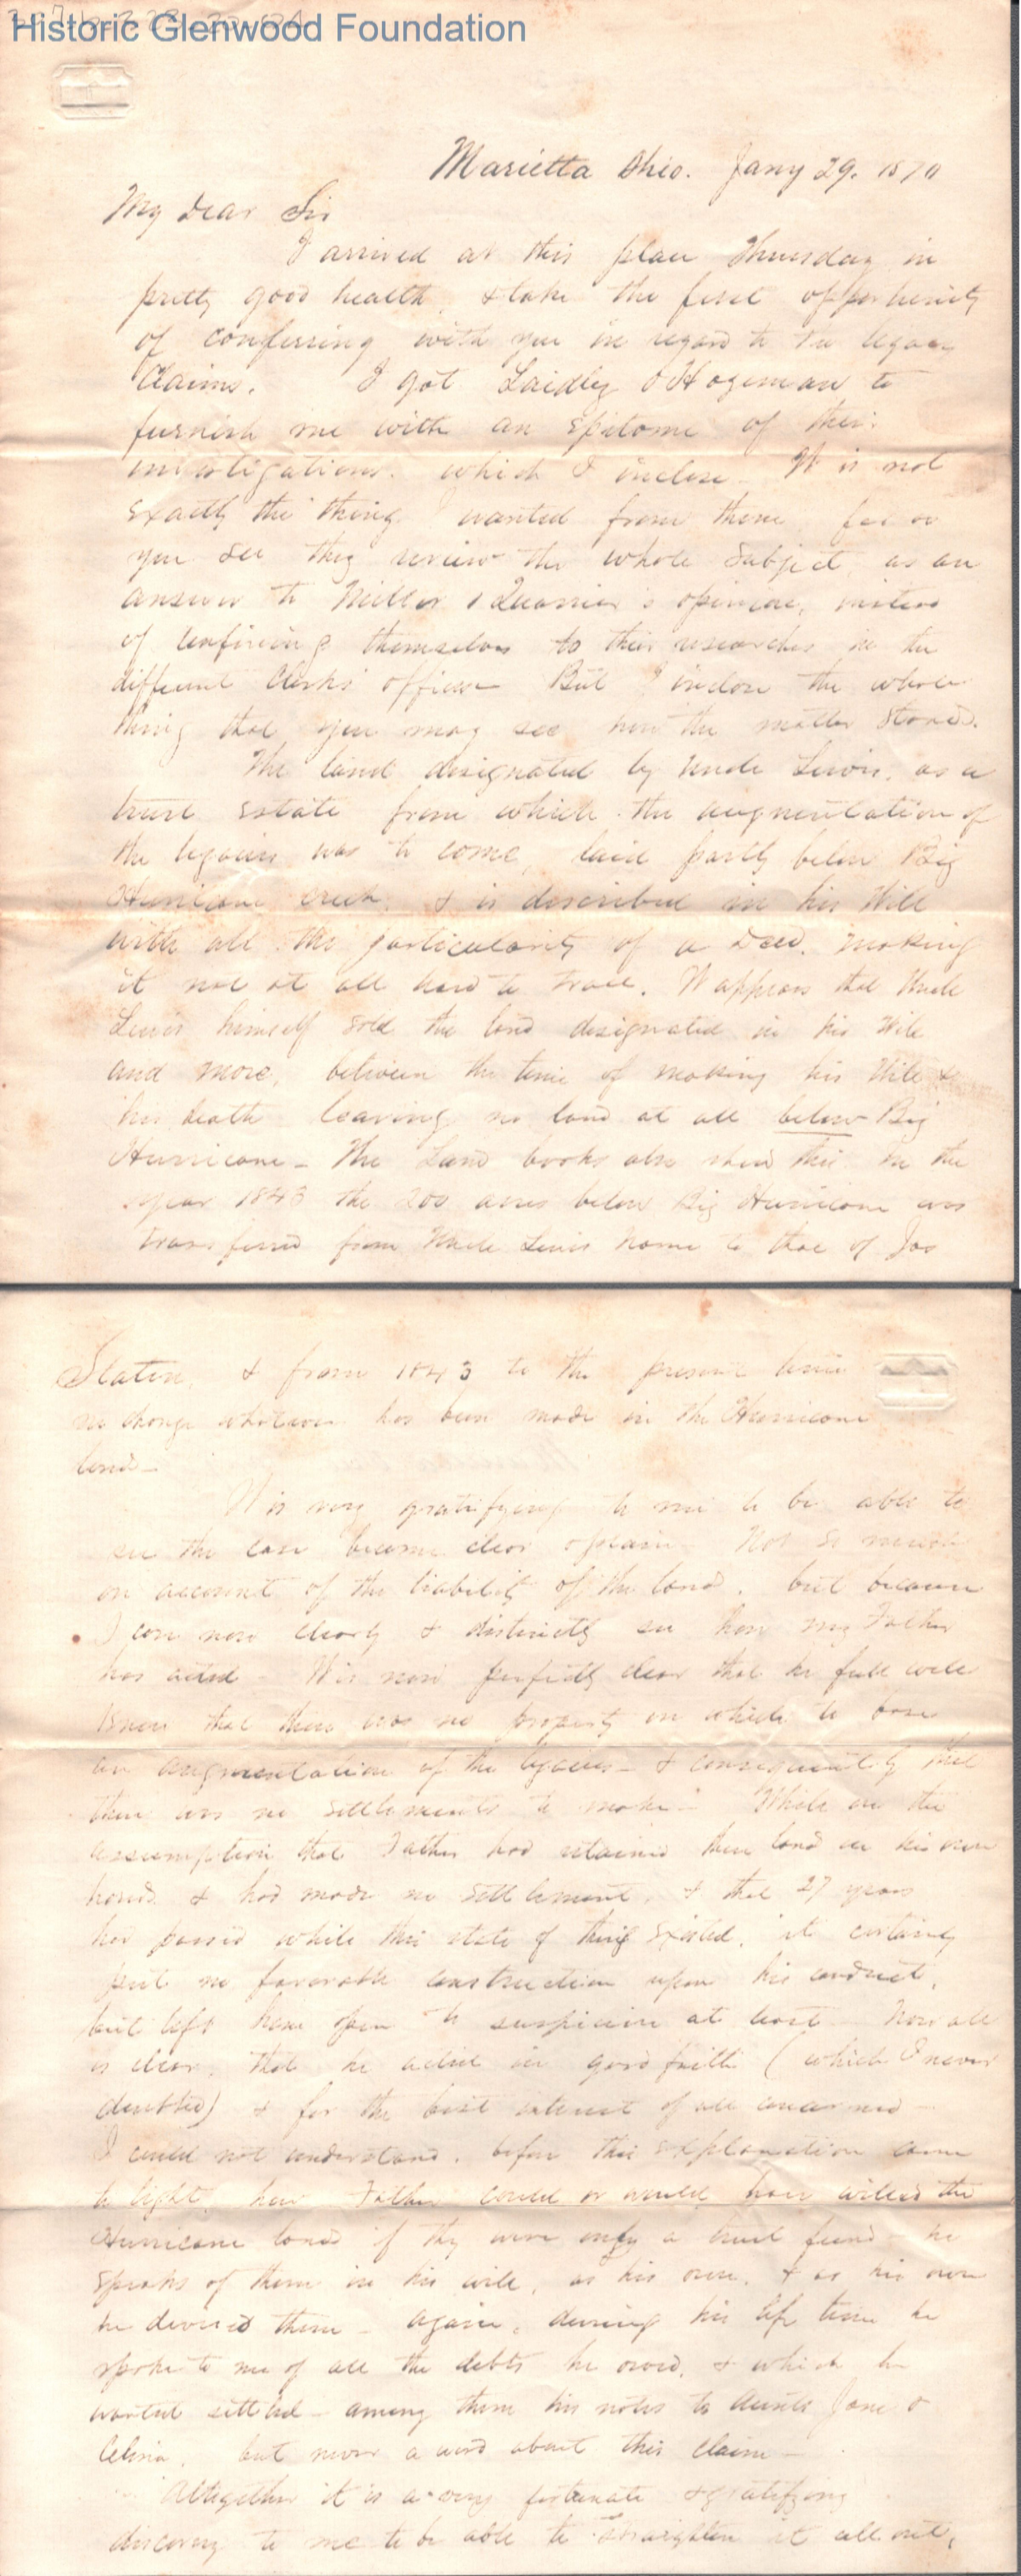 Historic Glenwood Foundation
Marietta Ohio. Jany 29. 1870
My Dear Sir
I arrived at this place Thursday in
pretty good health, & take the first opportunity
of conferring with you in regard to the legacy
Claims. I got Laidley & Hogeman to
furnish me with an Epitome of their
investigations. which I inclose It is not
exactly the thing I wanted from them for as
you see they review the whole subject, as an
answer to Miller & Quarrier's opinion, instead
of confining themselves to their researches in the
different Clerks' offices But I inclose the whole
thing that you may see how the matter stands.
The land designated by Uncle Lewis, as a
trust Estate from which the augmentation of
the legacies was to come, laid partly below Big
Hurricane creek, & is described in his Will
with all the particularity of a Deed, making
it not at all hard to trace. It appears that Uncle
Lewis himself sold the land designated in his Will
and more, between the time of making his Will &
his death leaving no land at all below Big
Hurricane - The Land books also show this In the
year 1843 the 200 acres below Big Hurricane was
transferred from Uncle Lewis name to that of Jas
Staton, & from 1843 to the present time
no change whatever has been made in the Hurricane
land -
It is very gratifying to me to be able to
see the case become clear & plain Not so much
on account of the liability of the land, but because
I can now clearly & distinctly see how my Father
has acted - It is now perfectly clear that he full well
knew that there was no property on which to base
an augmentation of the legacies - & consequently that
there was no settlements to make - While on the
assumption that Father had retained these land in his own
hands & had made no settlement, & that 27 years
had passed while this state of things existed, it certainly
put no favorable construction upon his conduct,
but left him open to suspicion at least Now all
is clear, that he acted in good faith (which I never
doubted) & for the best interest of all concerned -
I could not understand, before this explanation came
to light, how Father could or would have willed the
Hurricane lands if they were only a trust fund - he
speaks of them in his will, as his own, & as his own
he devised them - again, during his life time he
spoke to me of all the debts he owed, & which he
wanted settled - among them his notes to Aunts Jane &
Celina, but never a word about this claim -
Altogether it is a very fortunate & gratifying
discovery to me to be able to straighten it all out,